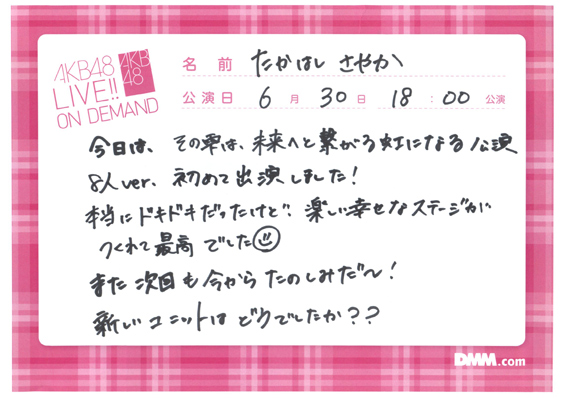 AKB48
LIVE!!
ON DEMAND
AKB
48
名前 たかはし さやか
公演日 6月30日 18:00公演
今日は、その雫は、未来へと繋がる虹になる公演
8人ver. 初めて出演しました!
本当にドキドキだったけど、楽しい幸せなステージが
つくれて最高でした
また次回も今からたのしみだ〜!
新しいユニットはどうでしたか??
DMM.com